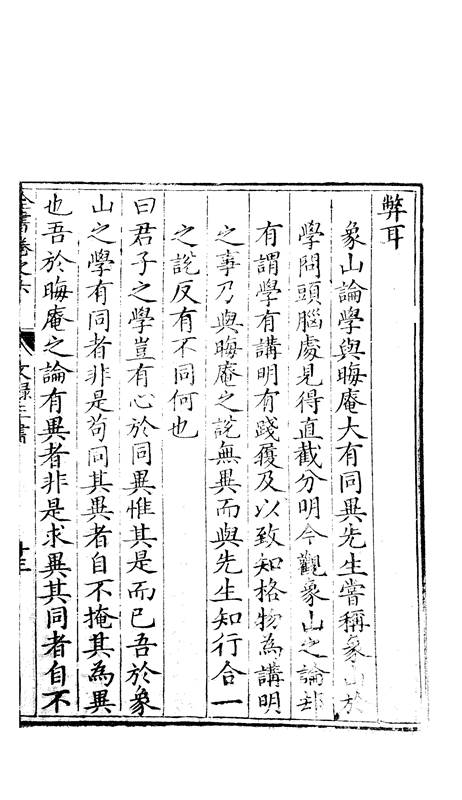 弊耳
象山論學與晦庵大有同異先生嘗稱象山於
學問頭腦處見得直截分明今觀象山之論却
有謂學有講明有踐履及以致知格物為講明
之事乃與晦庵之說無異而與先生知行合一
之說反有不同何也
曰君子之學豈有心於同異惟其是而已吾於象
山之學有同者非是苟同其異者自不掩其為異
也吾於晦庵之論有異者非是求異其同者自不
全書卷之六
文錄三書
十三